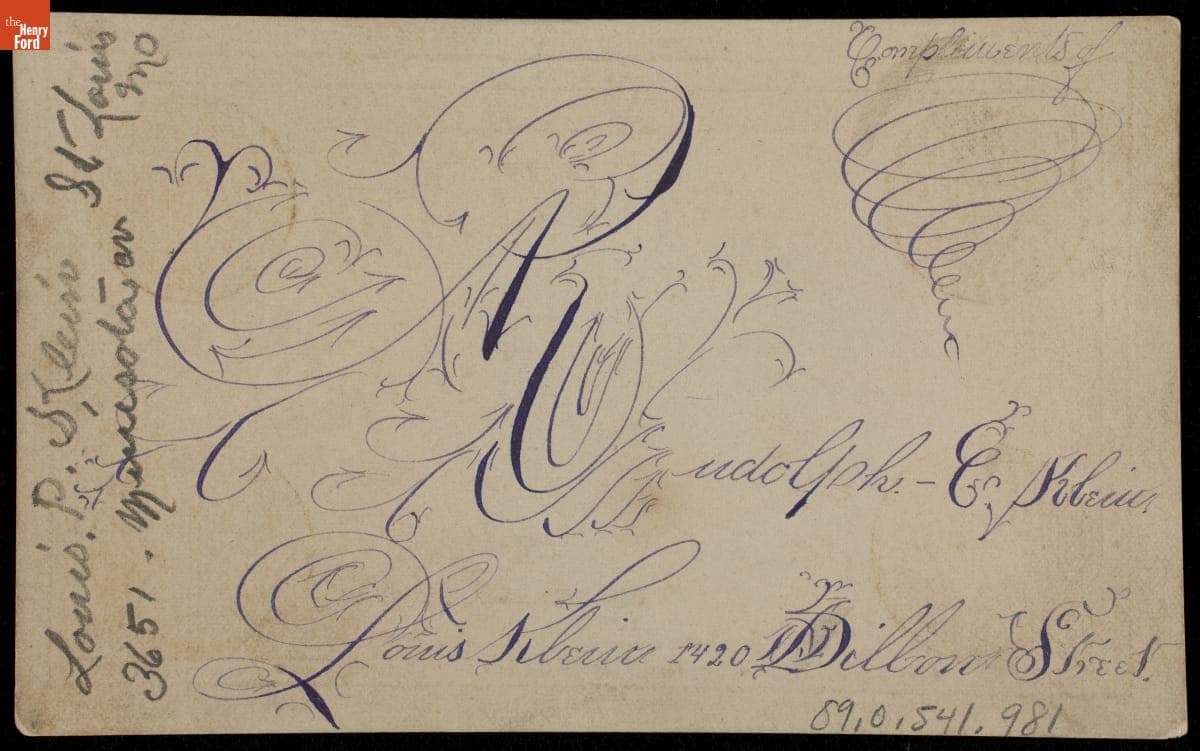 the
Henry
Ford
Compliments of
Klein
Rudolph. - E. Klein.
Louis Klein 1420 Dillon Street.
Louis. P. Klein St Louis
3651. Minnesota av Mo
89.0.541.981